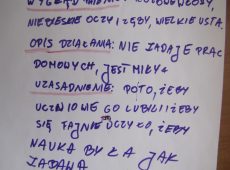 NIEBIESKIE OCZY I ZĘBY, WIELKIE USTA.
OPIS DZIAŁANIA: NIE ZADAJE PRAC
DOMOWYCH, JEST MIŁY
UZASADNIENIE: POTO, ŻEBY
UCZNIOWIE GO LUBILI I ŻEBY
SIĘ FAJNIE UCZYŁO, ŻEBY
NAUKA BYŁA JAK
ZABAWA